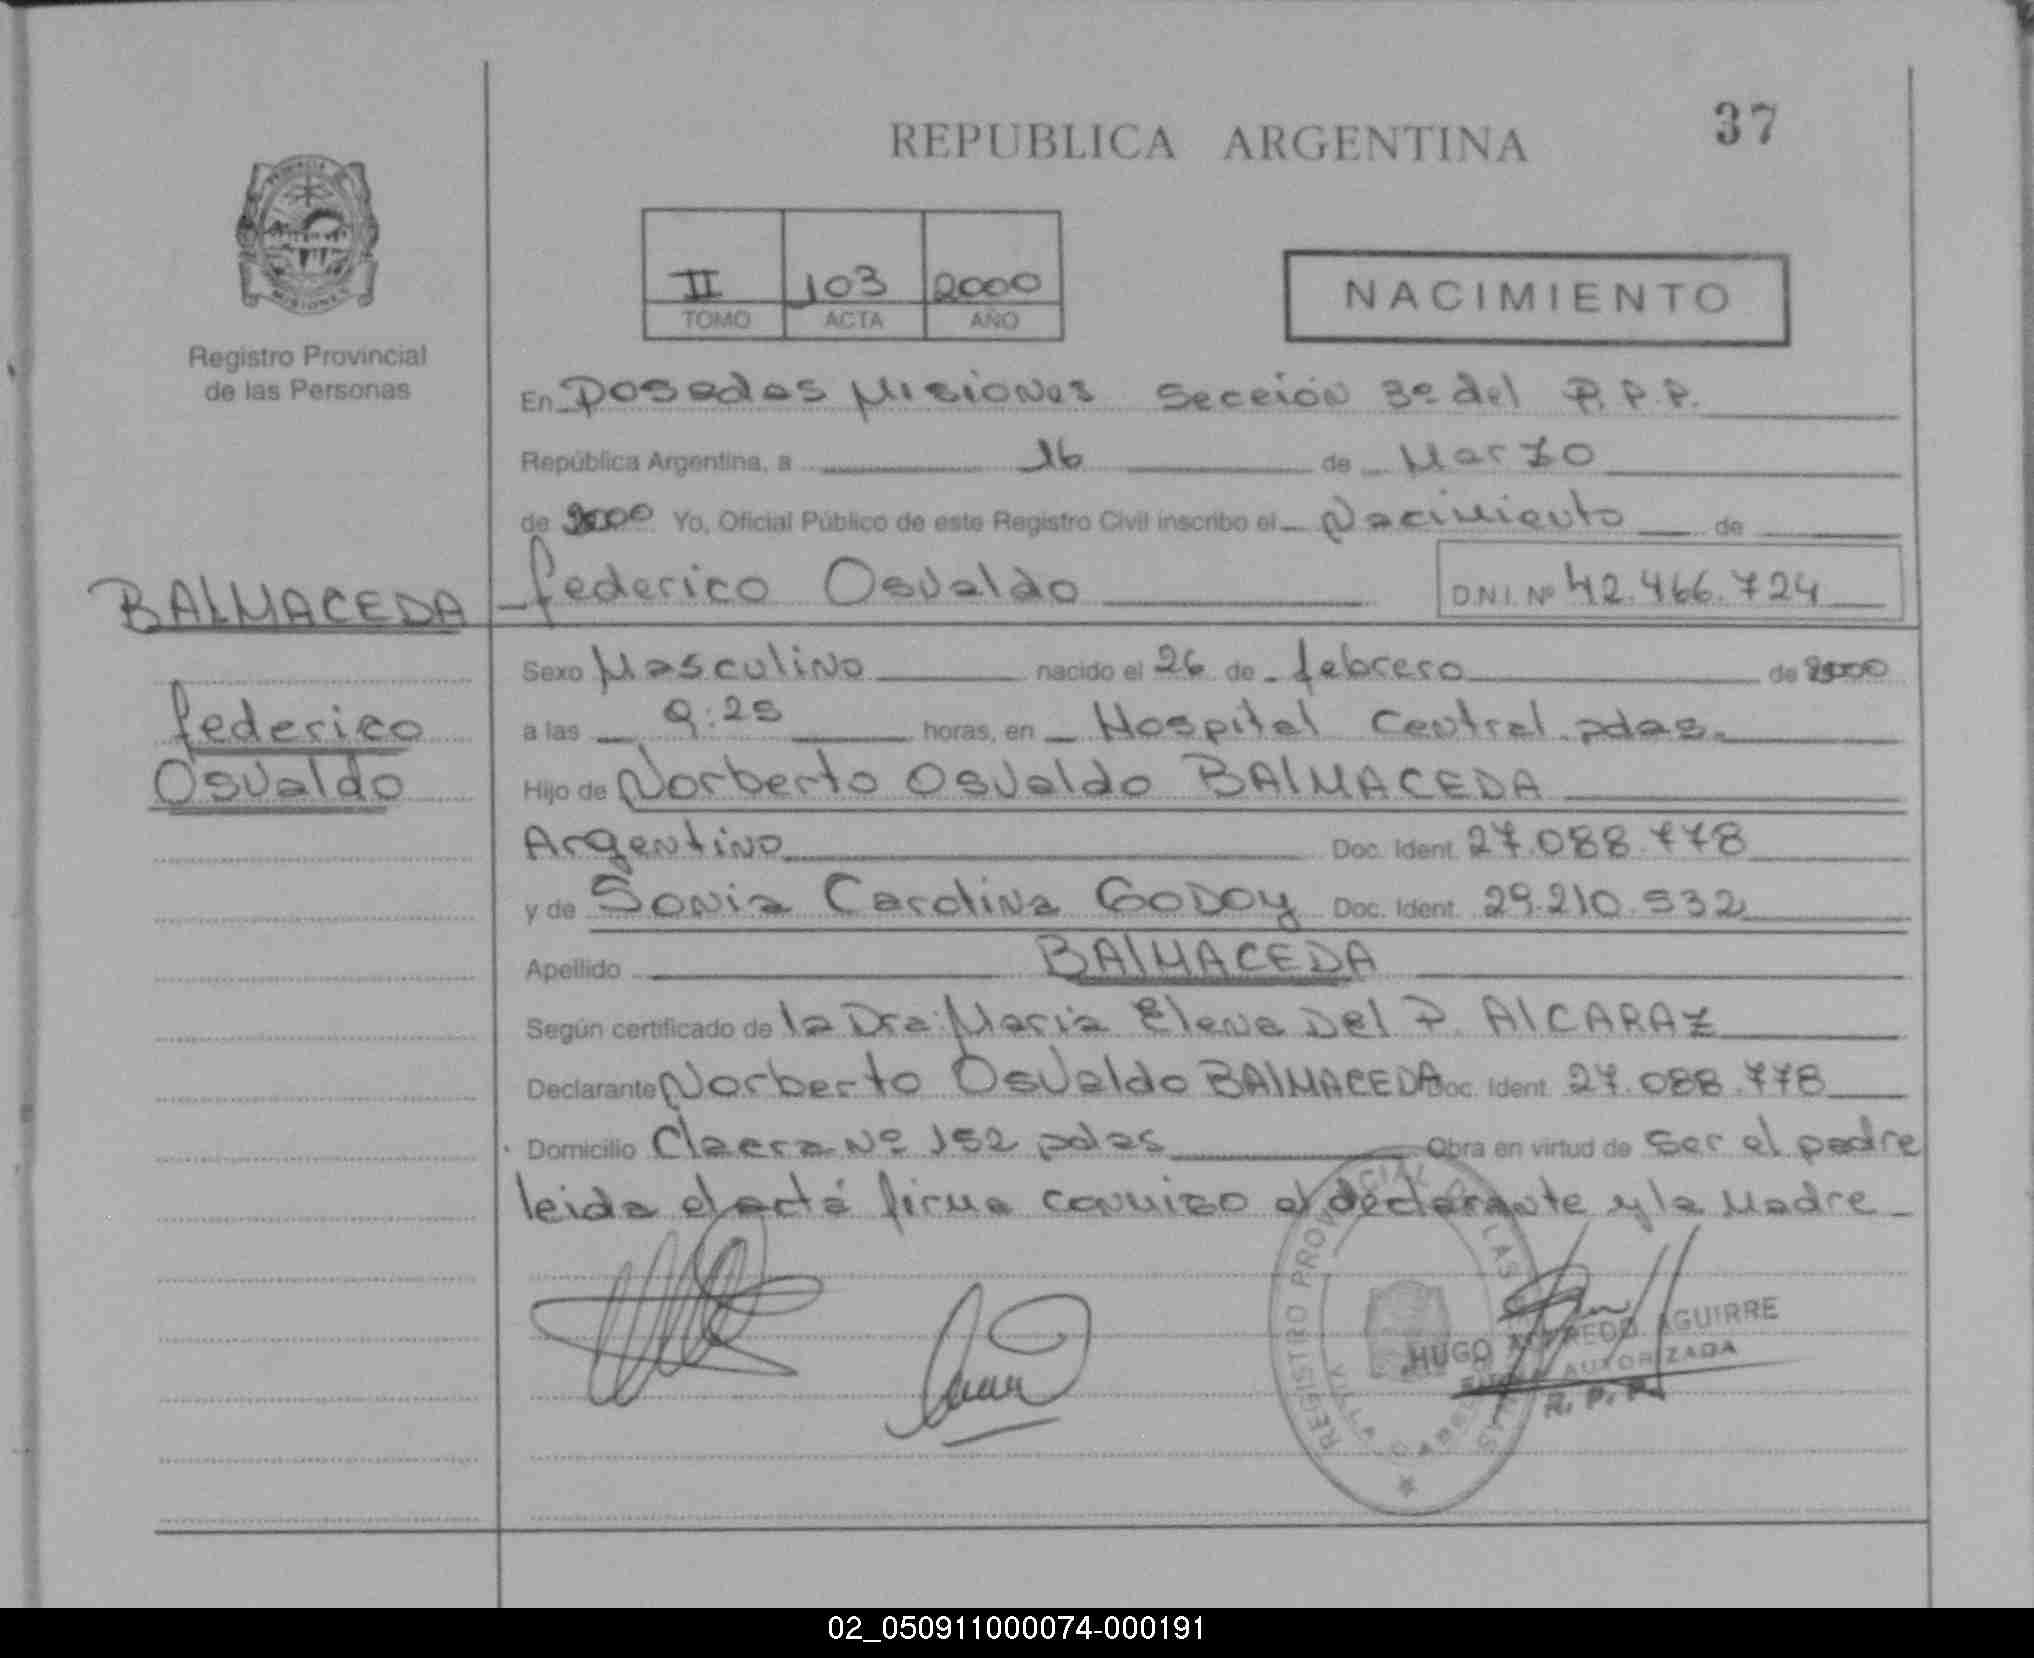 37
REPUBLICA ARGENTINA
Registro Provincial
de las Personas
II 103 2000
TOMO ACTA AÑO
NACIMIENTO
En Posadas Misiones Sección 3º del R.P.P.
República Argentina, a 16 de Marzo
de 2000 Yo, Oficial Público de este Registro Civil inscribo el Nacimiento de
BALMACEDA
Federico Osvaldo
D.N.I. Nº 42.466.724
Federico
Osvaldo
Sexo Masculino nacido el 26 de febrero de 2000
a las 9:25 horas, en Hospital Central pdas.
Hijo de Norberto Osvaldo BALMACEDA
Argentino Doc. Ident. 27.088.778
y de Sonia Carolina GODOY Doc. Ident. 29.210.532
Apellido BALMACEDA
Según certificado de la Dra: Maria Elena Del P. ALCARAZ
Declarante Norberto Osvaldo BALMACEDA Doc. Ident. 27.088.778
Domicilio Nº 152 pdas Obra en virtud de ser el padre
leida el acta firma conmigo el declarante y la Madre
REGISTRO PROVINCIAL DE LAS PERSONAS
HUGO ALFREDO AGUIRRE
FIRMA AUTORIZADA
R.P.P.
02_050911000074-000191